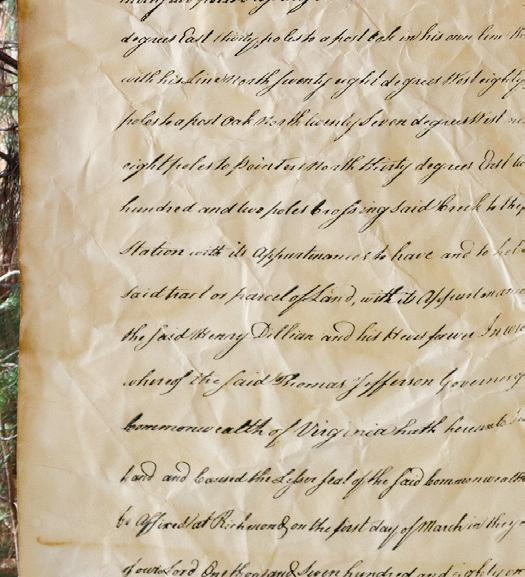 degrees East thirty poles to a post Oak in his own line
with his Line North seventy eight degrees West eighty
poles to a post Oak North twenty Seven degrees West
eight poles to Pointers North thirty degrees East
hundred and two poles Crossing said Creek to the
Station with its Appurtenances to have and to
said tract or parcel of Land, with its Appurtenances
the said Henry Dillian and his Heirs forever In
whereof the said Thomas Jefferson Governor of
Commonwealth of Virginia hath hereunto
hand and Caused the Lesser seal of the said Commonwealth
be Affixed at Richmond, on the first day of March in the
of our Lord One thousand Seven hundred and eighty